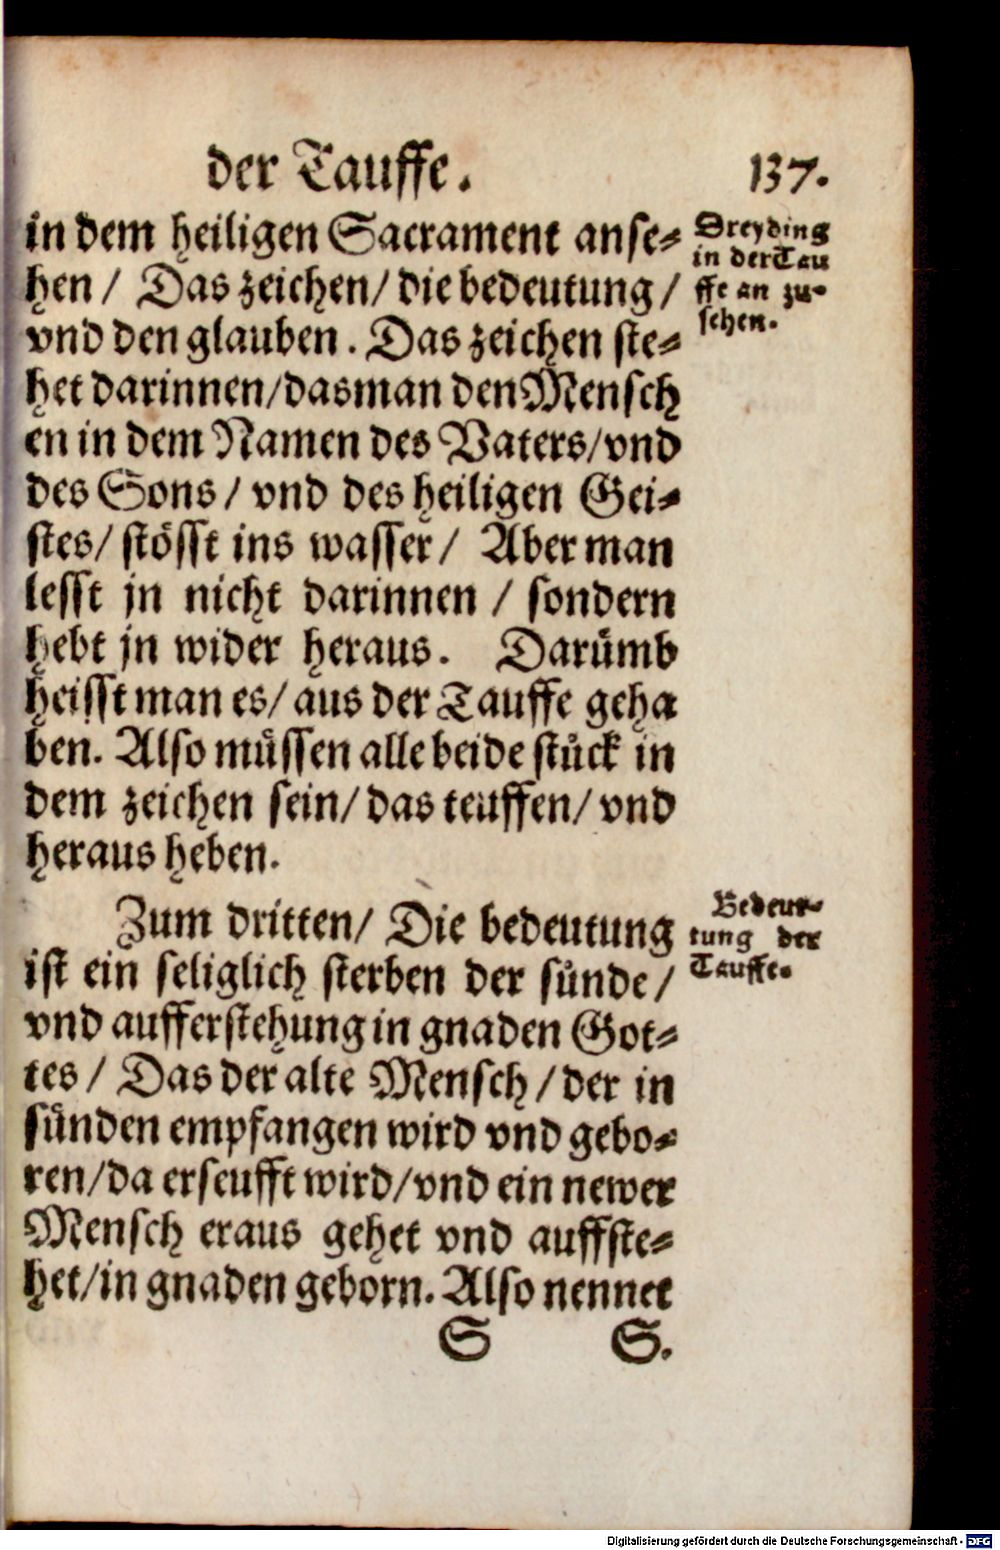 der Tauffe.
137.
in dem heiligen Sacrament anse⸗
hen / Das zeichen/ die bedeutung /
vnd den glauben. Das zeichen ste⸗
het darinnen/dasman den Mensch
en in dem Namen des Vaters/vnd
des Sons / vnd des heiligen Gei⸗
stes/ stösst ins wasser / Aber man
lesst jn nicht darinnen / sondern
hebt jn wider heraus. Darümb
heisst man es/ aus der Tauffe geha
ben. Also müssen alle beide stück in
dem zeichen sein/ das teuffen/ vnd
heraus heben.
Drey ding
in der Tau
ffe an zu⸗
sehen.
Zum dritten/ Die bedeutung
ist ein seliglich sterben der sünde /
vnd aufferstehung in gnaden Got⸗
tes / Das der alte Mensch / der in
sünden empfangen wird vnd gebo⸗
ren/da erseufft wird/vnd ein newer
Mensch eraus gehet vnd auffste⸗
het/in gnaden geborn. Also nennet
Bedeu⸗
tung der
Tauffe.
S S.
Digitalisierung gefördert durch die Deutsche Forschungsgemeinschaft - DFG